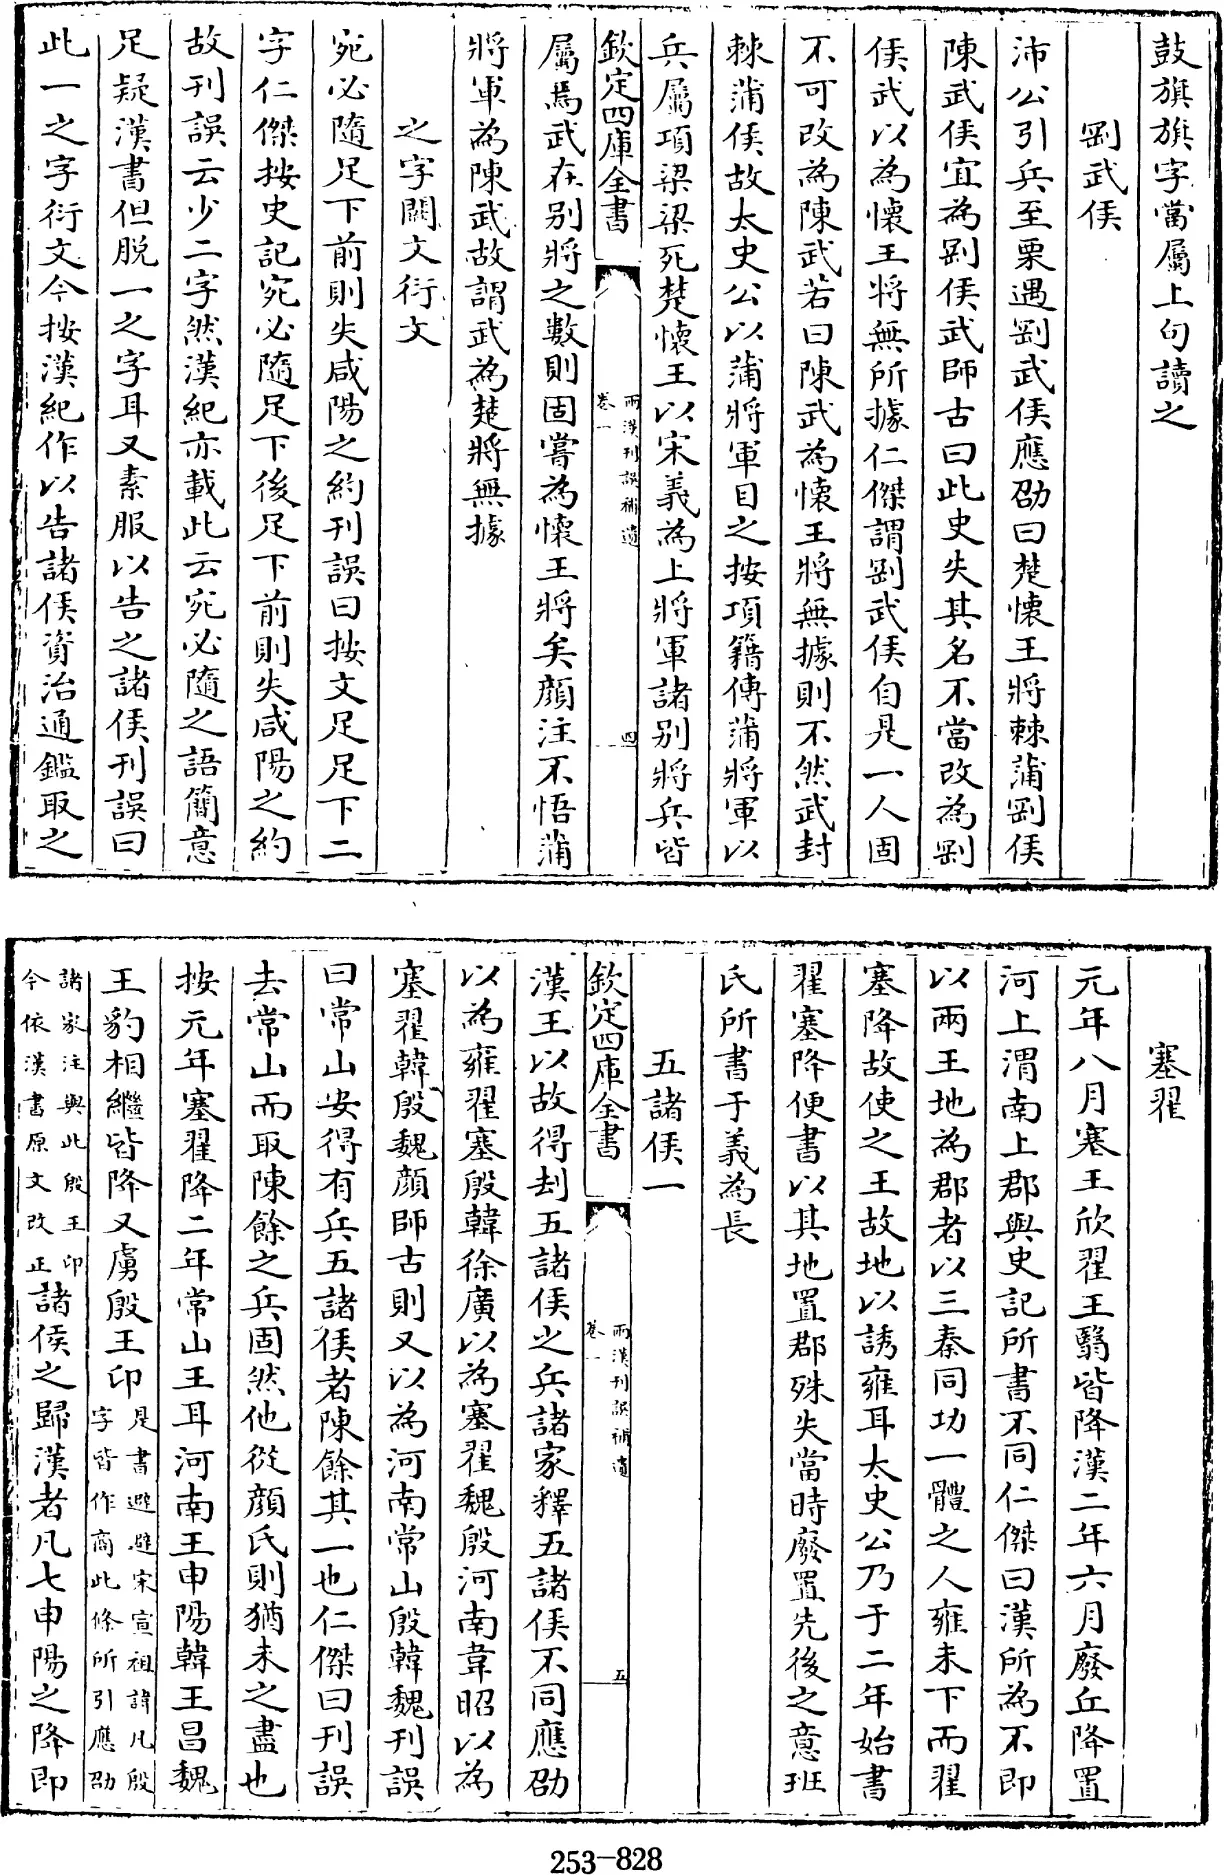 鼓旗旗字當屬上句讀之
剛武侯
沛公引兵至栗遇剛武侯應劭曰楚懷王將棘蒲剛侯
陳武侯宜為剛侯武師古曰此史失其名不當改為剛
侯武以為懷王將無所據仁傑謂剛武侯自是一人固
不可改為陳武若曰陳武為懷王將無據則不然武封
棘蒲侯故太史公以蒲將軍目之按項籍傳蒲將軍以
兵屬項梁梁死楚懷王以宋義為上將軍諸别將兵皆
欽定四庫全書
兩漢刊誤補遺
卷一
四
屬焉武在别將之數則固嘗為懷王將矣顔注不悟蒲
將軍為陳武故謂武為楚將無據
之字闕文衍文
宛必隨足下前則失咸陽之約刊誤曰按文足足下二
字仁傑按史記宛必隨足下後足下前則失咸陽之約
故刊誤云少二字然漢紀亦載此云宛必隨之語簡意
足疑漢書但脱一之字耳又素服以告之諸侯刊誤曰
此一之字衍文今按漢紀作以告諸侯資治通鑑取之
塞翟
元年八月塞王欣翟王翳皆降漢二年六月廢丘降置
河上渭南上郡與史記所書不同仁傑曰漢所為不即
以兩王地為郡者以三秦同功一體之人雍未下而翟
塞降故使之王故地以誘雍耳太史公乃于二年始書
翟塞降便書以其地置郡殊失當時廢置先後之意班
氏所書于義為長
五諸侯一
欽定四庫全書
兩漢刊誤補遺
卷一
五
漢王以故得刦五諸侯之兵諸家釋五諸侯不同應劭
以為雍翟塞殷韓徐廣以為塞翟魏殷河南韋昭以為
塞翟韓殷魏顔師古則又以為河南常山殷韓魏刊誤
曰常山安得有兵五諸侯者陳餘其一也仁傑曰刊誤
去常山而取陳餘之兵固然他從顔氏則猶未之盡也
按元年塞翟降二年常山王耳河南王申陽韓王昌魏
王豹相繼皆降又虜殷王卬是書避避宋宣祖諱凡殷
字皆作商此條所引應劭
諸家注與此殷王卬
今依漢書原文改正諸侯之歸漢者凡七申陽之降即
253-828